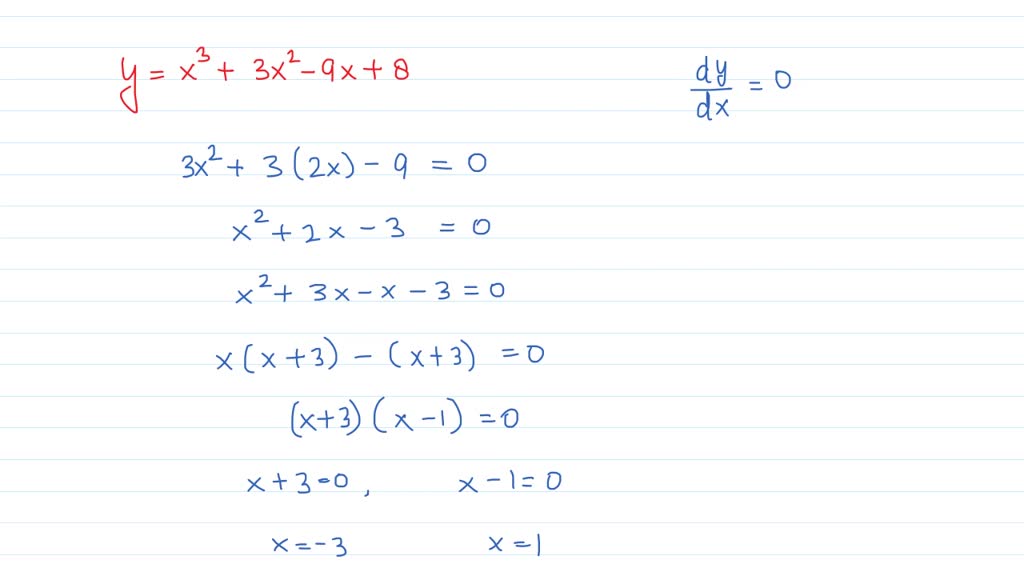 y = x³ + 3x² - 9x + 8
dy/dx = 0
3x² + 3(2x) - 9 = 0
x² + 2x - 3 = 0
x² + 3x - x - 3 = 0
x(x+3) - (x+3) = 0
(x+3)(x-1) = 0
x + 3 = 0, x - 1 = 0
x = -3 x = 1